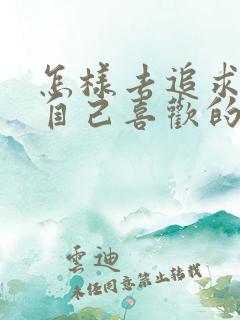 怎樣去追求
自己喜歡的
雲迪
未任同意禁止转载